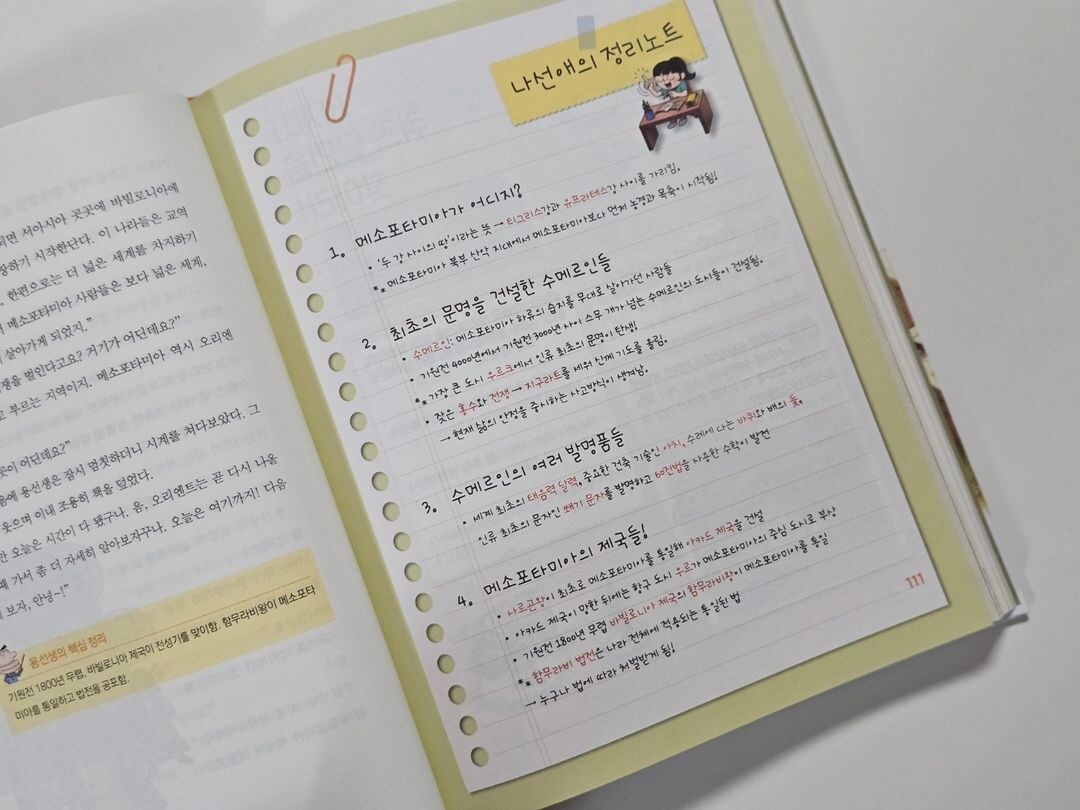 되면 서아시아 곳곳에 바빌로니아에
장하기 시작한단다. 이 나라들은 교역
, 한편으로는 더 넓은 세계를 차지하기
메소포타미아 사람들은 보다 넓은 세계,
살아가게 되었지."
쟁을 벌인다고요? 거기가 어딘데요?"
고 부르는 지역이지. 메소포타미아 역시 오리엔
곳이 어딘데요?"
음에 용선생은 잠시 멈칫하더니 시계를 쳐다보았다. 그
웃으며 이내 조용히 책을 덮었다.
오늘은 시간이 다 됐구나. 음, 오리엔트는 곧 다시 나올
때 가서 좀 더 자세히 알아보자꾸나. 오늘은 여기까지! 다음
보자. 안녕~!"
용선생의 핵심 정리
기원전 1800년 무렵, 바빌로니아 제국이 전성기를 맞이함. 함무라비왕이 메소포타
미아를 통일하고 법전을 공포함.
나선애의 정리노트
1. 메소포타미아가 어디지?
• '두 강 사이의 땅'이라는 뜻 → 티그리스강과 유프라테스강 사이를 가리킴.
** 메소포타미아 북부 산악 지대에서 메소포타미아보다 먼저 농경과 목축이 시작됨!
2. 최초의 문명을 건설한 수메르인들
• 수메르인: 메소포타미아 하류의 습지를 무대로 살아가던 사람들
• 기원전 4000년에서 기원전 3000년 사이 스무 개가 넘는 수메르인의 도시들이 건설됨.
** 가장 큰 도시 우르크에서 인류 최초의 문명이 탄생!
• 잦은 홍수와 전쟁 → 지구라트를 세워 신께 기도를 올림.
→ 현재 삶의 안정을 중시하는 사고방식이 생겨남.
3. 수메르인의 여러 발명품들
• 세계 최초의 태음력 달력, 중요한 건축 기술인 아치, 수레에 다는 바퀴와 배의 돛,
인류 최초의 문자인 쐐기 문자를 발명하고 60진법을 사용한 수학이 발전
4. 메소포타미아의 제국들!
• 사르곤왕이 최초로 메소포타미아를 통일해 아카드 제국을 건설
• 아카드 제국이 망한 뒤에는 항구 도시 우르가 메소포타미아의 중심 도시로 부상
• 기원전 1800년 무렵 바빌로니아 제국의 함무라비왕이 메소포타미아를 통일
** 함무라비 법전은 나라 전체에 적용되는 통일된 법
→ 누구나 법에 따라 처벌받게 됨!
111